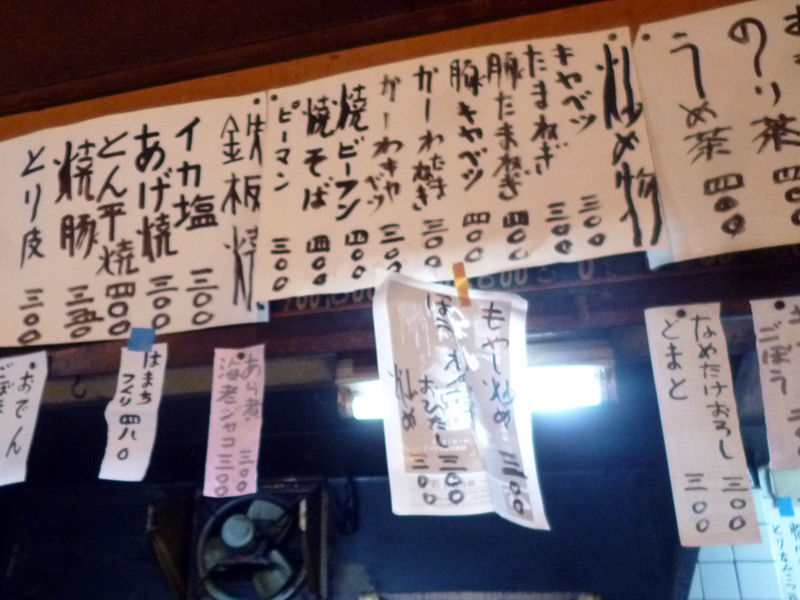 のり茶 四〇〇
うめ茶 四〇〇
炒め物
キャベツ 三〇〇
たまねぎ 三〇〇
豚たまねぎ 四〇〇
豚キャベツ 四〇〇
がーわたまねぎ 三〇〇
がーわキャベツ 三〇〇
焼ビーフン 四〇〇
焼そば 四〇〇
ピーマン 三〇〇
鉄板焼
イカ塩 三〇〇
あげ焼 三〇〇
とん平焼 四〇〇
焼豚 三五〇
とり皮 三〇〇
ごぼう
なめたけおろし 三〇〇
とまと 三〇〇
もやし炒め 三〇〇
おひたし 三〇〇
炒め 三〇〇
あら煮 三〇〇
海老ジャコ 三〇〇
はまち
つくり 四八〇
おでん